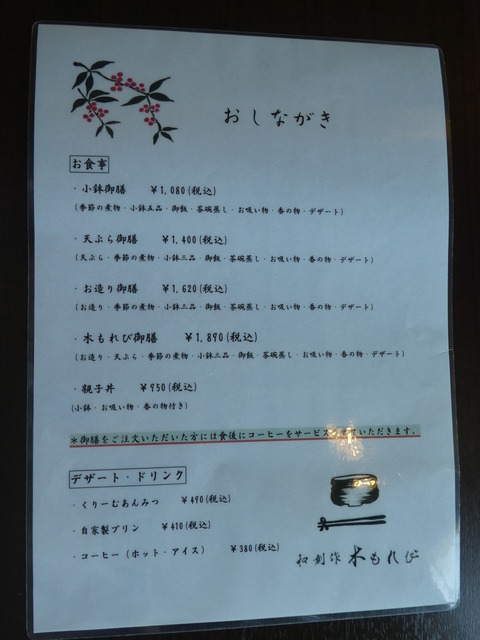 おしながき
お食事
・小鉢御膳 ¥1,080(税込)
(季節の煮物・小鉢五品・御飯・茶碗蒸し・お吸い物・香の物・デザート)
・天ぷら御膳 ¥1,400(税込)
(天ぷら・季節の煮物・小鉢三品・御飯・茶碗蒸し・お吸い物・香の物・デザート)
・お造り御膳 ¥1,620(税込)
(お造り・季節の煮物・小鉢三品・御飯・茶碗蒸し・お吸い物・香の物・デザート)
・木もれび御膳 ¥1,890(税込)
(お造り・天ぷら・季節の煮物・小鉢三品・御飯・茶碗蒸し・お吸い物・香の物・デザート)
・親子丼 ¥950(税込)
(小鉢・お吸い物・香の物付き)
*御膳をご注文いただいた方には食後にコーヒーをサービスいただきます。
デザート・ドリンク
・くりーむあんみつ ¥490(税込)
・自家製プリン ¥410(税込)
・コーヒー(ホット・アイス) ¥380(税込)
和創作 木もれび